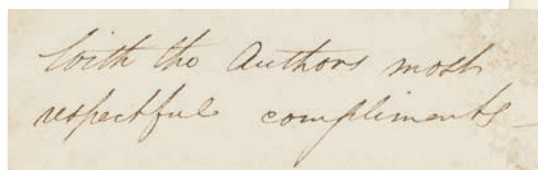 With the Authors most
respectful compliments —